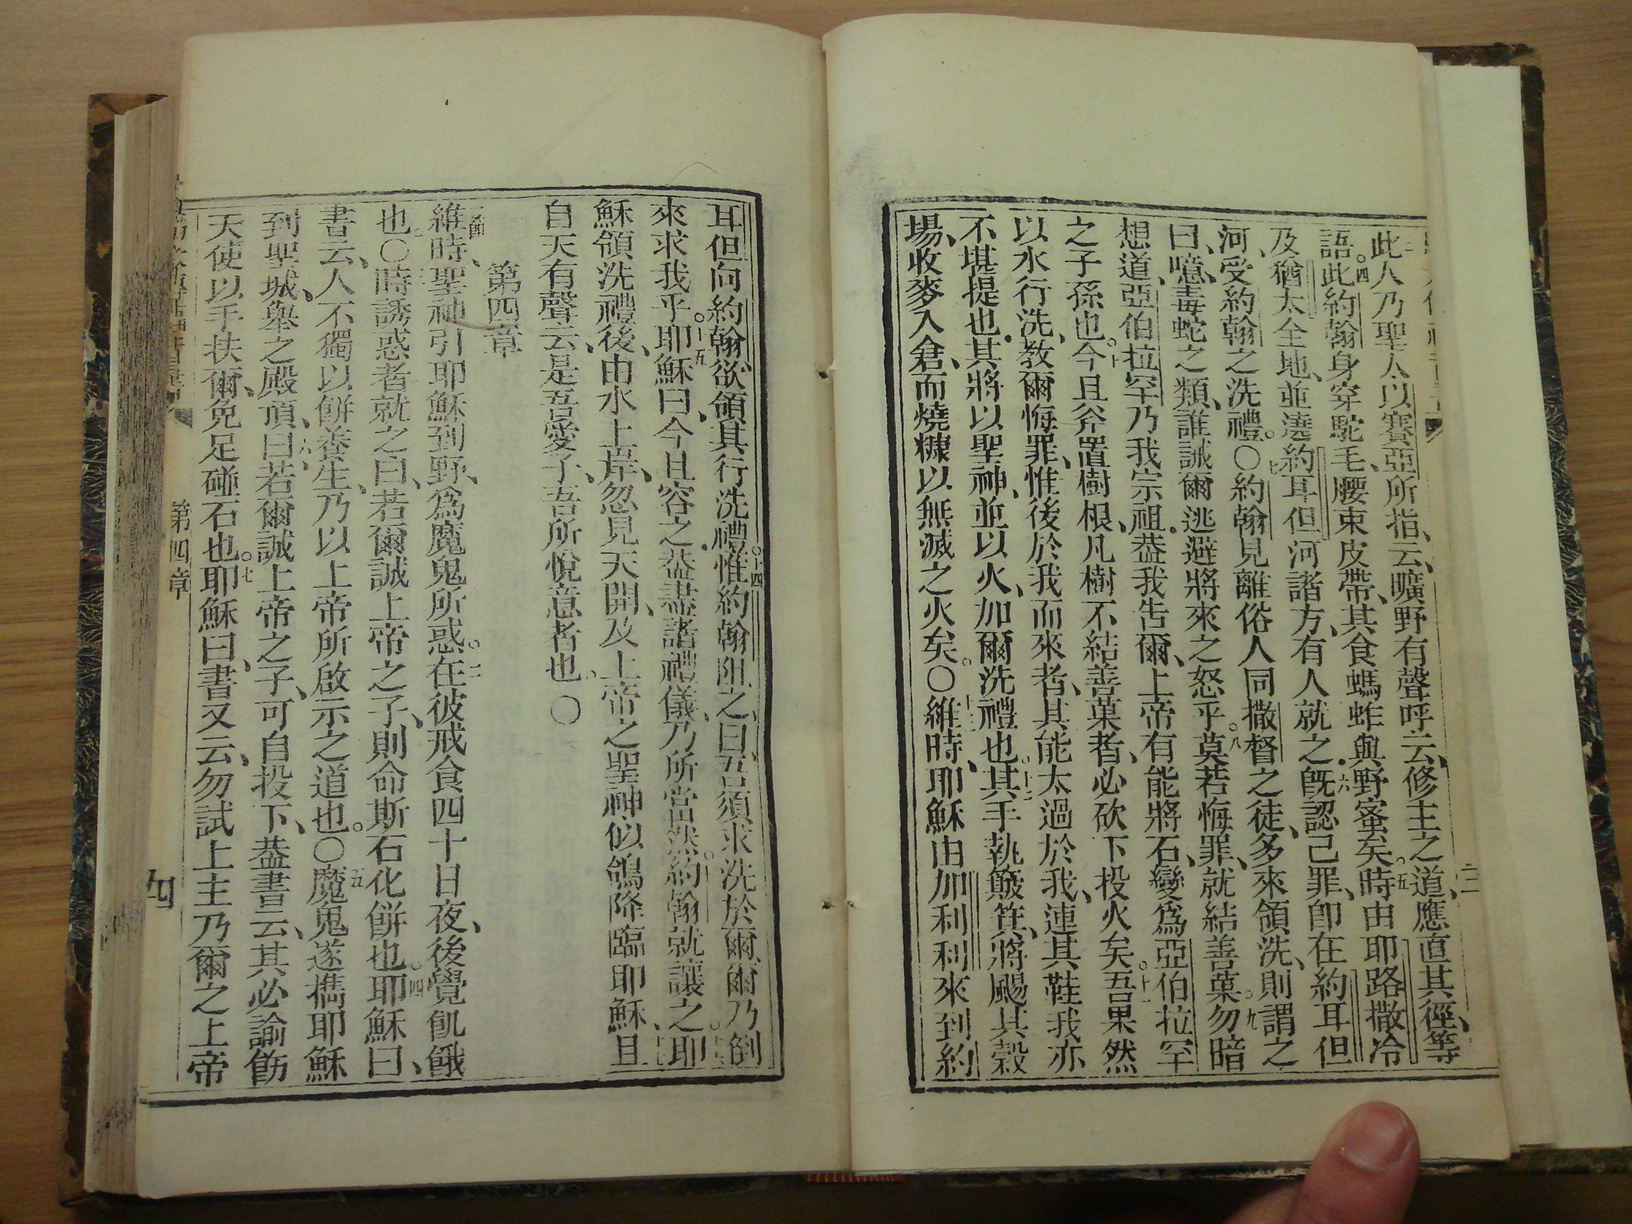 此人乃聖人以賽亞所指云、曠野有聲呼云、修主之道、應直其徑等
語。四此約翰身穿駝毛、腰束皮帶、其食螞蚱與野蜜矣。五時由耶路撒冷
及猶太全地、並遶約耳但河諸方、有人就之。六既認己罪、卽在約耳但
河、受約翰之洗禮。〇七約翰見離俗人同撒督之徒、多來領洗、則謂之
曰、噫、毒蛇之類、誰誡爾逃避將來之怒乎。八莫若悔罪、就結善菓。九勿暗
想道、亞伯拉罕乃我宗祖。葢我吿爾、上帝有能將石、變爲亞伯拉罕
之子孫也。十今且斧置樹根、凡樹不結善菓者、必砍下投火矣。十一吾果然
以水行洗、敎爾悔罪、惟後於我而來者、其能太過於我、連其鞋我亦
不堪提也。其將以聖神、並以火、加爾洗禮也。十二其手執簸箕、將颺其穀
場、收麥入倉、而燒糠以無滅之火矣。〇十三維時、耶穌由加利利來到約
耳但向約翰、欲領其行洗禮。十四惟約翰阻之曰、吾須求洗於爾、爾乃倒
來求我乎。十五耶穌曰、今且容之。葢盡諸禮儀、乃所當然。約翰就讓之。十六耶
穌領洗禮後、由水上岸、忽見天開、及上帝之聖神似鴿降臨耶穌、且
自天有聲云、是吾愛子、吾所悅意者也。〇
第四章
一節維時、聖神引耶穌到野、爲魔鬼所惑。二在彼戒食四十日夜、後覺飢餓
也。〇三時誘惑者就之曰、若爾誠上帝之子、則命斯石化餅也。四耶穌曰、
書云、人不獨以餅養生、乃以上帝所啟示之道也。〇五魔鬼遂攜耶穌
到聖城、舉之殿頂、六曰、若爾誠上帝之子、可自投下、葢書云、其必諭飭
天使以手扶爾、免足碰石也。七耶穌曰、書又云、勿試上主乃爾之上帝
第四章
四